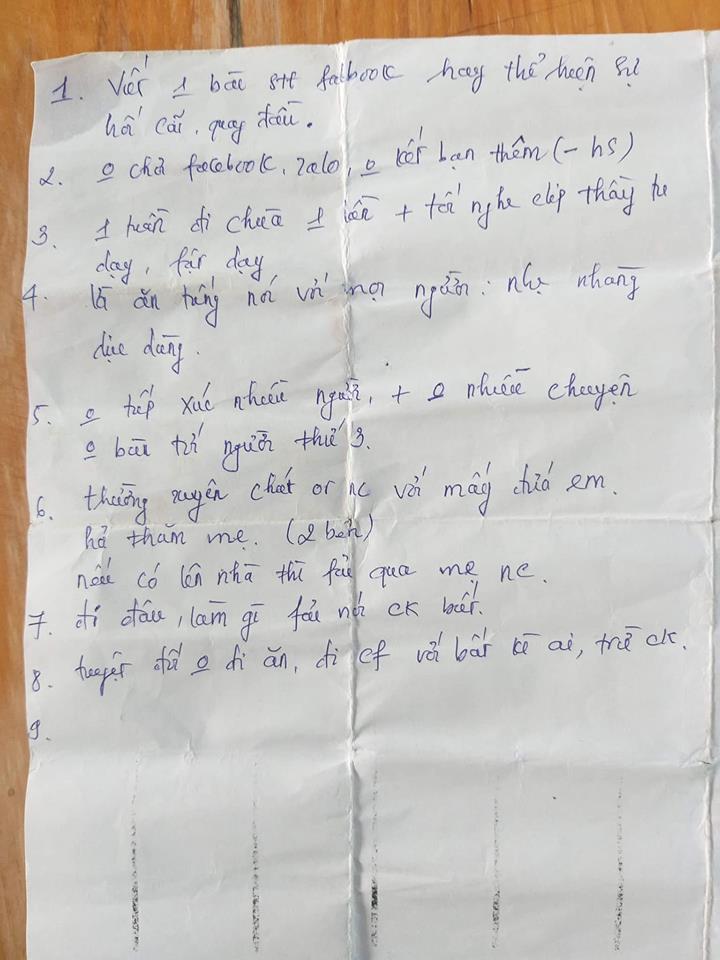 1. Viết 1 bài stt facbook hay thể hiện sự
hối cãi, quay đầu.
2. o chơi facebook, zalo, o kết bạn thêm (- hs)
3. 1 tuần đi chùa 1 lần + tối nghe clip thầy tu
dạy, fật dạy
4. là ăn tiếng nói với mọi người: nhẹ nhàng
dịu dàng.
5. o tiếp xúc nhiều người, + o nhiều chuyện
o bàn tới người thứ 3.
6. thường xuyên chat or nc với mấy chú em.
hỏi thăm mẹ. (2 bên)
nếu có lên nhà thì fải qua mẹ nc.
7. đi đâu, làm gì fải nói ck biết.
8. tuyệt đối o đi ăn, đi cf với bất kì ai, trừ ck.
9.